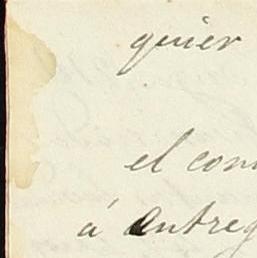 quier
el con
á entreg